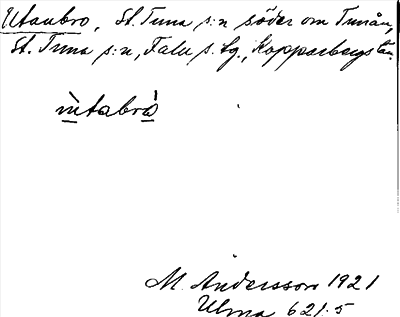 Utanbro, St. Tuna s:n söder om Tunån,
St. Tuna s:n, Falu s. tg., Kopparbergs län.
ùtabró
M. Andersson 1921
Ulma 621:5